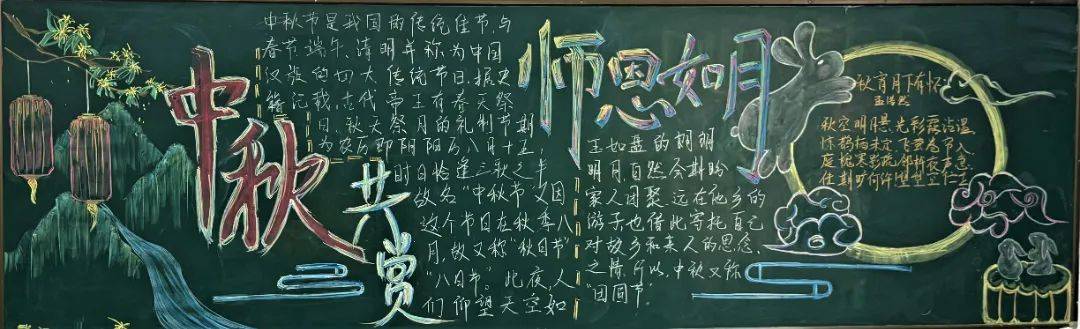 中秋
共赏
中秋节是我国的传统佳节,与
春节、端午、清明并称为中国
汉族的四大传统节日。据史
籍记载,古代帝王有春天祭
日、秋天祭月的礼制,节期
为农历即阴阳历八月十五,
时日恰逢三秋之半,
故名“中秋节”又因
这个节日在秋季八
月,故又称“秋日节”
“八日节”。此夜,人
们仰望天空如
师恩如月
玉如盘的明月
明月,自然会期盼
家人团聚。远在他乡的
游子也借此寄托自己
对故乡和亲人的思念
之情。所以,中秋又称
“团圆节”。
秋宵月下有怀
孟浩然
秋空明月悬,光彩露沾湿
惊鹊栖未定,飞萤卷帘入
庭槐寒影疏,邻杵夜声急
佳期旷何许,望望空伫立